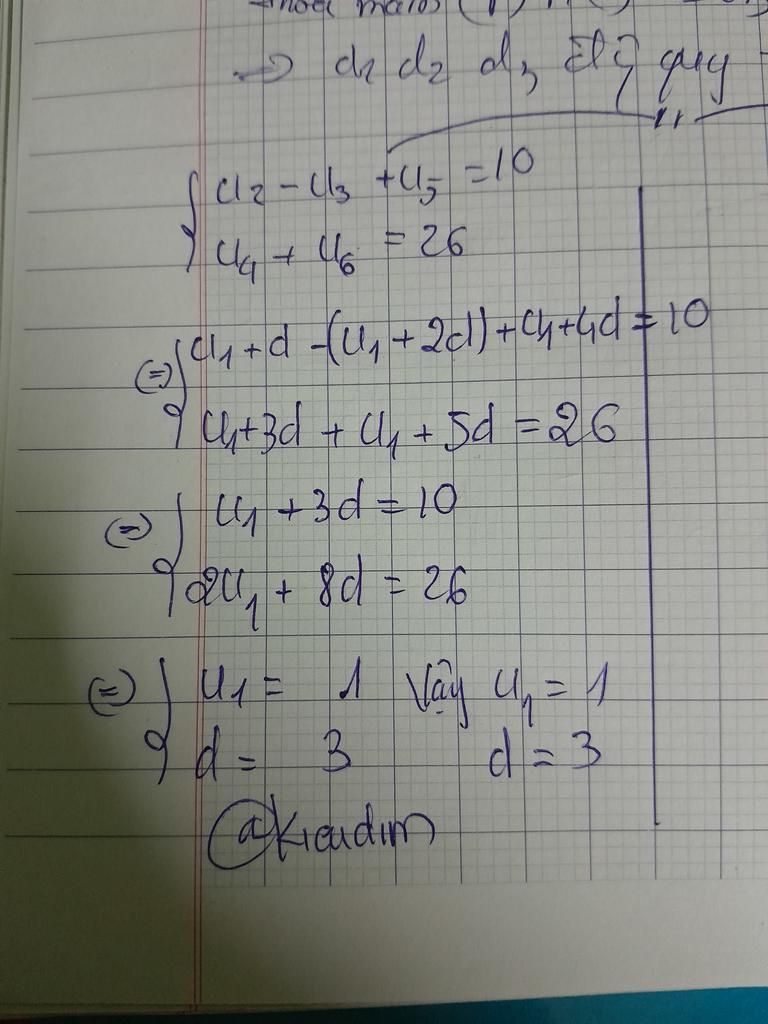 ⇒ d1 d2 d3 đồng quy
{ u₂ - u₃ + u₅ = 10
u₄ + u₆ = 26
⇔ { u₁ + d - (u₁ + 2d) + u₁ + 4d = 10
u₁ + 3d + u₁ + 5d = 26
⇔ { u₁ + 3d = 10
2u₁ + 8d = 26
⇔ { u₁ = 1 Vậy u₁ = 1
d = 3 d = 3